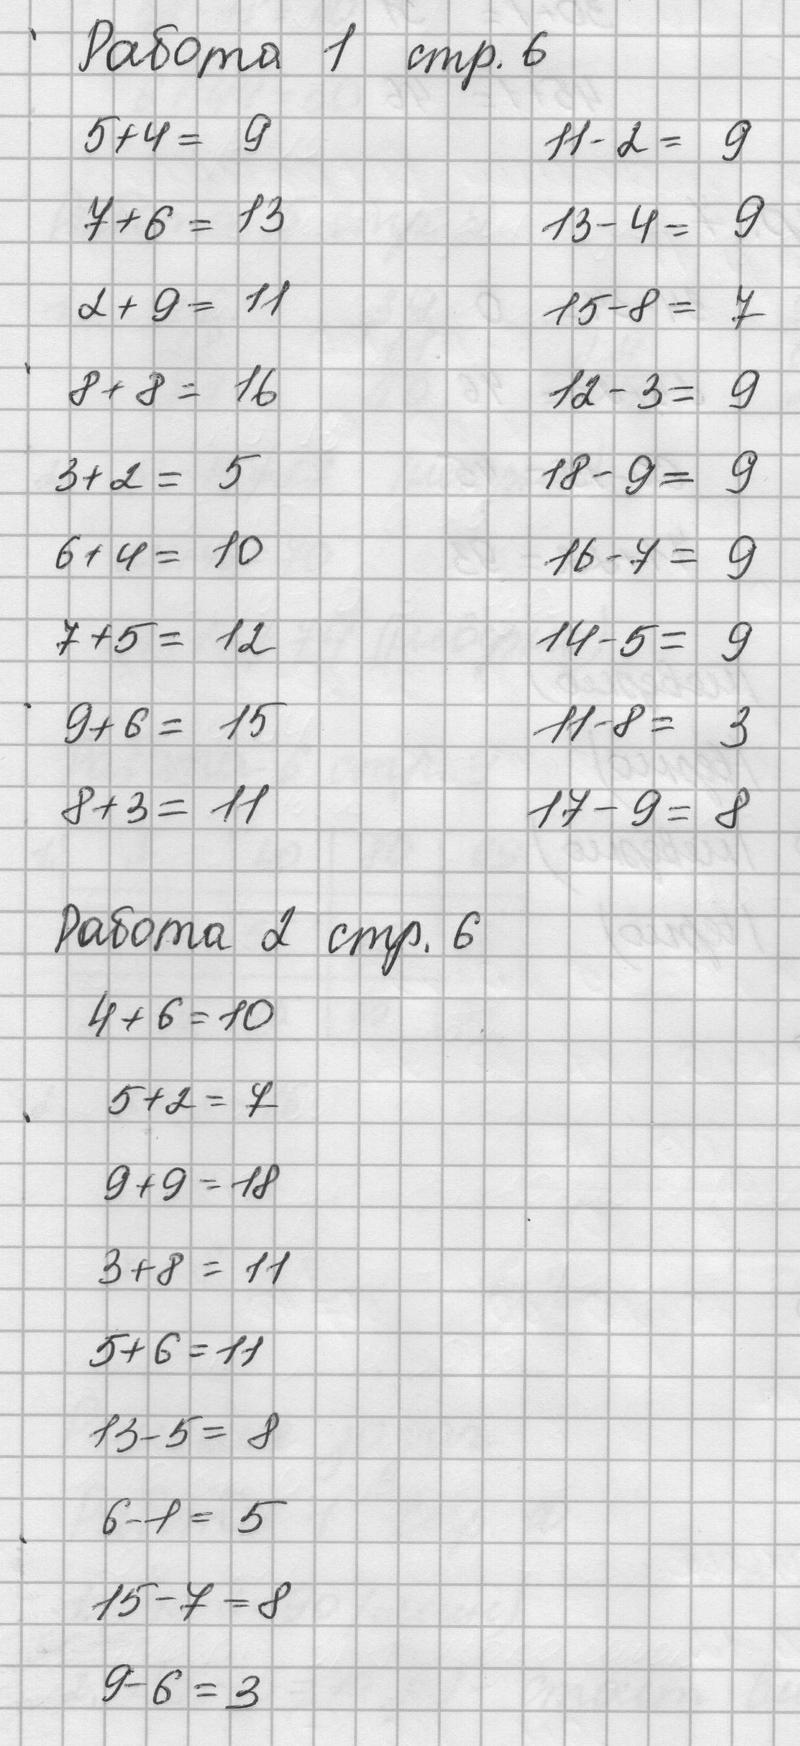 Работа 1 стр. 6
5+4= 9 11-2= 9
7+6= 13 13-4= 9
2+9= 11 15-8= 7
8+8= 16 12-3= 9
3+2= 5 18-9= 9
6+4= 10 16-7= 9
7+5= 12 14-5= 9
9+6= 15 11-8= 3
8+3= 11 17-9= 8
Работа 2 стр. 6
4+6=10
5+2=7
9+9=18
3+8=11
5+6=11
13-5=8
6-1=5
15-7=8
9-6=3